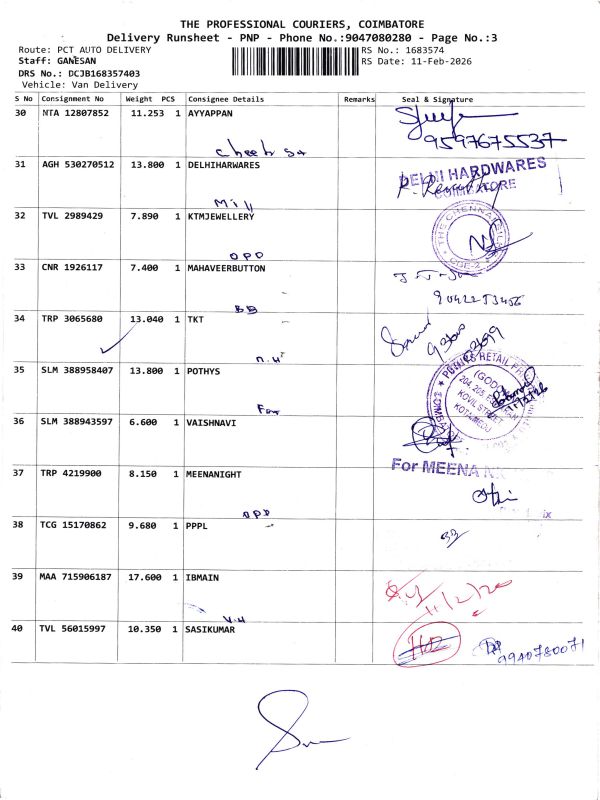 THE PROFESSIONAL COURIERS, COIMBATORE
Delivery Runsheet - PNP - Phone No.:9047080280 - Page No.:3
Route: PCT AUTO DELIVERY
RS No.: 1683574
Staff: GANESAN
RS Date: 11-Feb-2026
DRS No.: DCJB168357403
Vehicle: Van Delivery
S No Consignment No Weight PCS Consignee Details Remarks Seal & Signature
30 NTA 12807852 11.253 1 AYYAPPAN
9597675537
31 AGH 530270512 13.800 1 DELHIHARWARES
DELHI HARDWARES
COIMBATORE
32 TVL 2989429 7.890 1 KTMJEWELLERY
THE CHENNAI SILKS
CBE-2
OPD
33 CNR 1926117 7.400 1 MAHAVEERBUTTON
BB
34 TRP 3065680 13.040 1 TKT
35 SLM 388958407 13.800 1 POTHYS
POTHYS RETAIL
KOVIL STREET
36 SLM 388943597 6.600 1 VAISHNAVI
For MEENA
37 TRP 4219900 8.150 1 MEENANIGHT
OPD
38 TCG 15170862 9.680 1 PPPL
39 MAA 715906187 17.600 1 IBMAIN
11/2/26
40 TVL 56015997 10.350 1 SASIKUMAR
9940780071